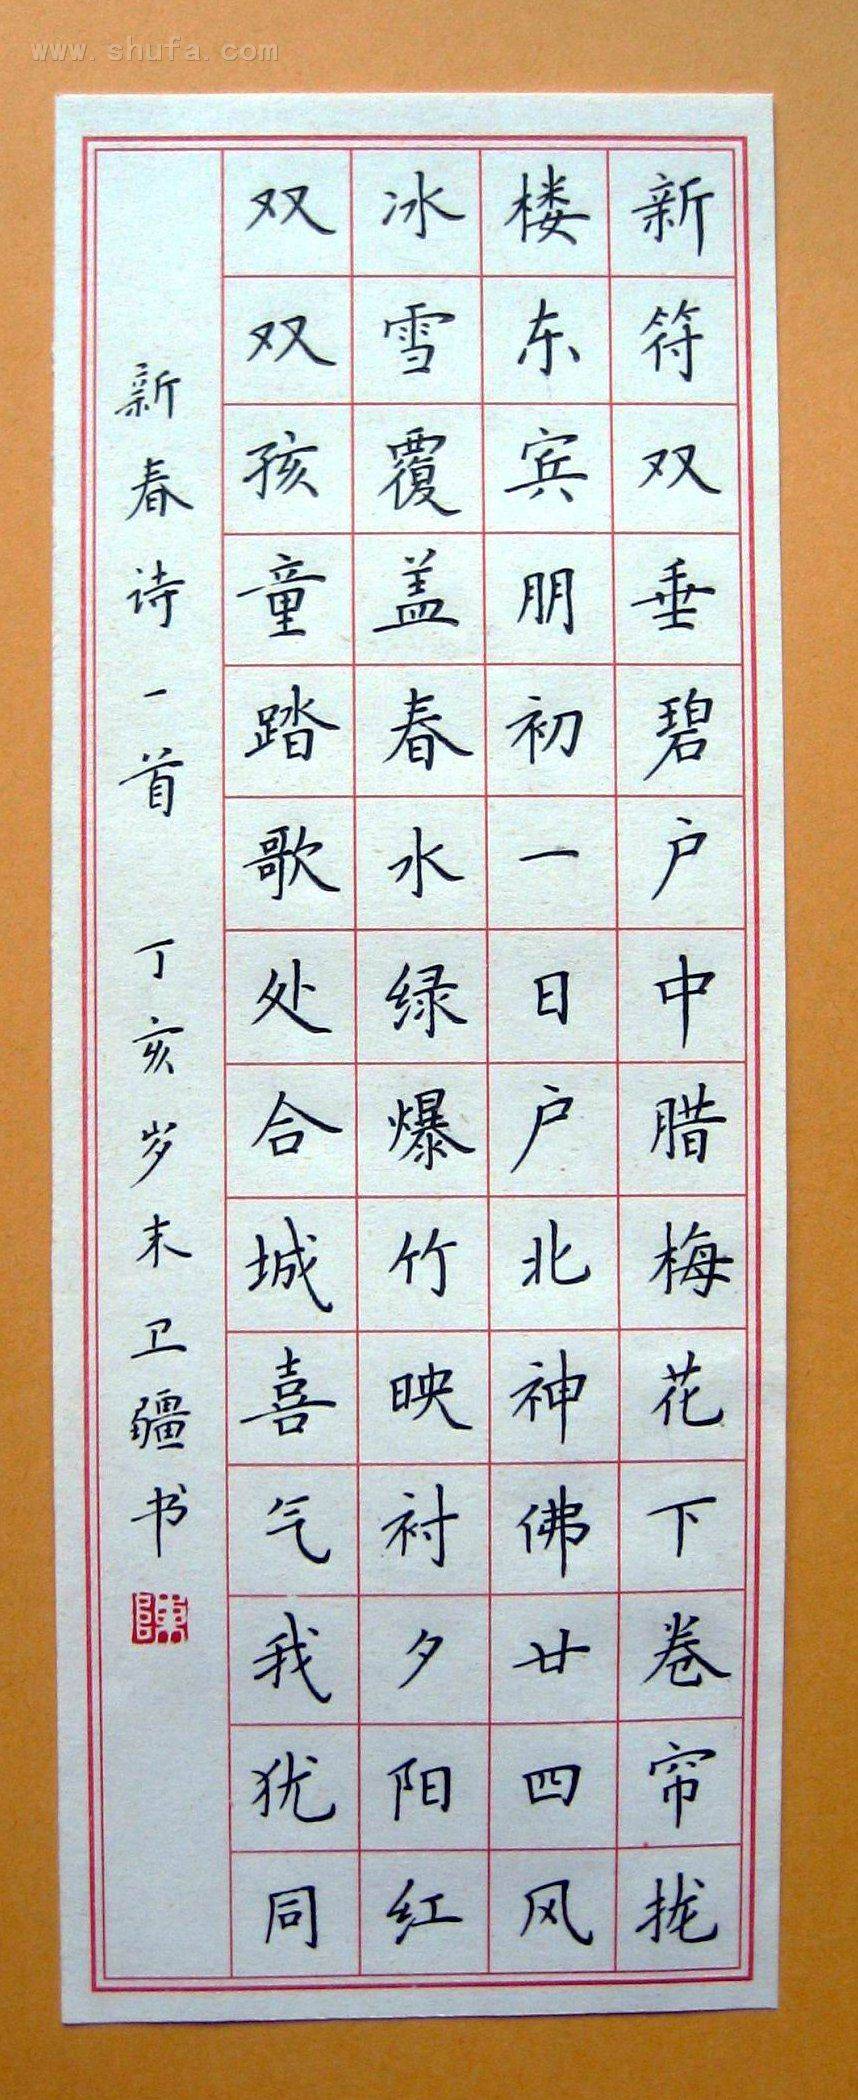 www.shufa.com
新符双垂碧户中腊梅花下卷帘拢
楼东宾朋初一日户北神佛廿四风
冰雪覆盖春水绿爆竹映衬夕阳红
双双孩童踏歌处合城喜气我犹同
新春诗一首 丁亥岁末卫疆书
陈